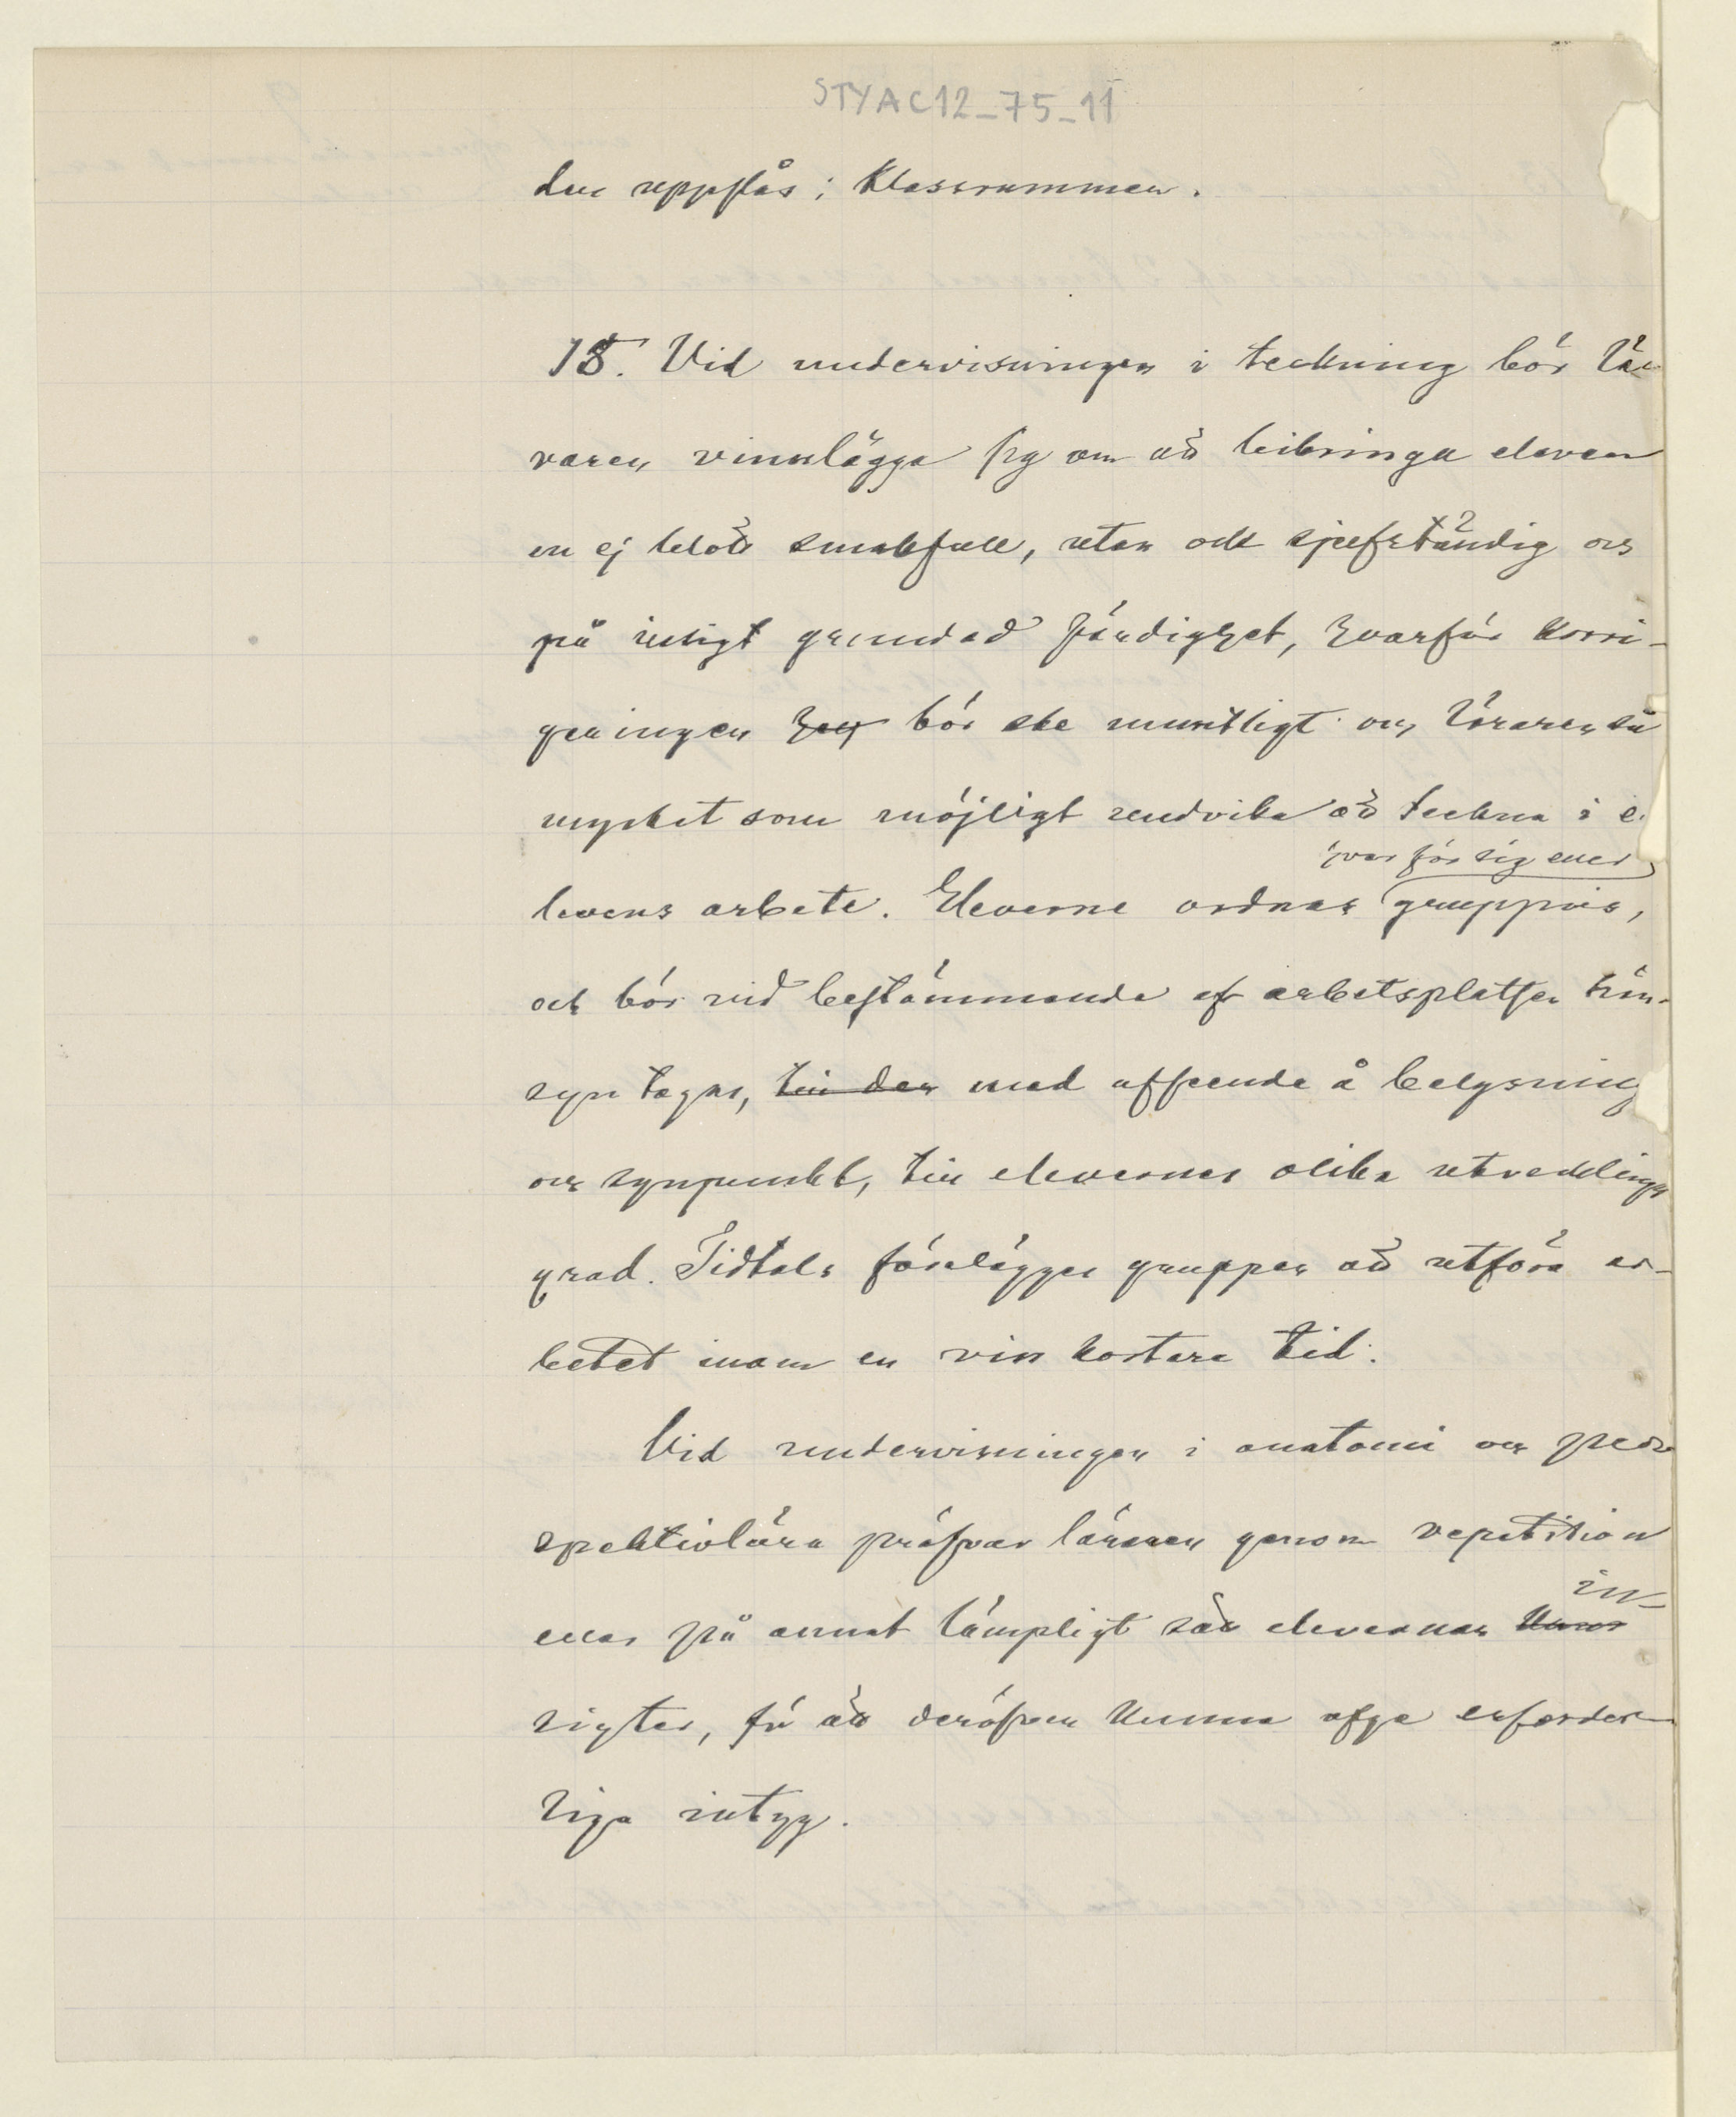 STYAC12_75_11
den uppslås i klassrummen.
15. Vid undervisningen i teckning bör lä
raren vinnlägga sig om att bibringa eleven
en ej blott smakfull, utan ock sjelfständig och
på insigt grundad färdighet, hvarför korri-
geringen bör ske muntligt och läraren så
mycket som möjligt undvika att teckna i e
hvar för sig eller
levens arbete. Eleverne ordnas gruppvis,
och bör vid bestämmande af arbetsplatsen hän-
syn tagas, till den med afseende å belysning
och synpunkt, till elevernes olika utvecklings
grad. Tidtals förelägges gruppen att utföra ar-
betet inom en viss kortare tid.
Vid undervisningen i anatomi och per
spektivlära pröfvar läraren genom repetition
in-
eller på annat lämpligt sätt elevernas
sigter, för att deröfver kunna afge erforder
liga intyg.